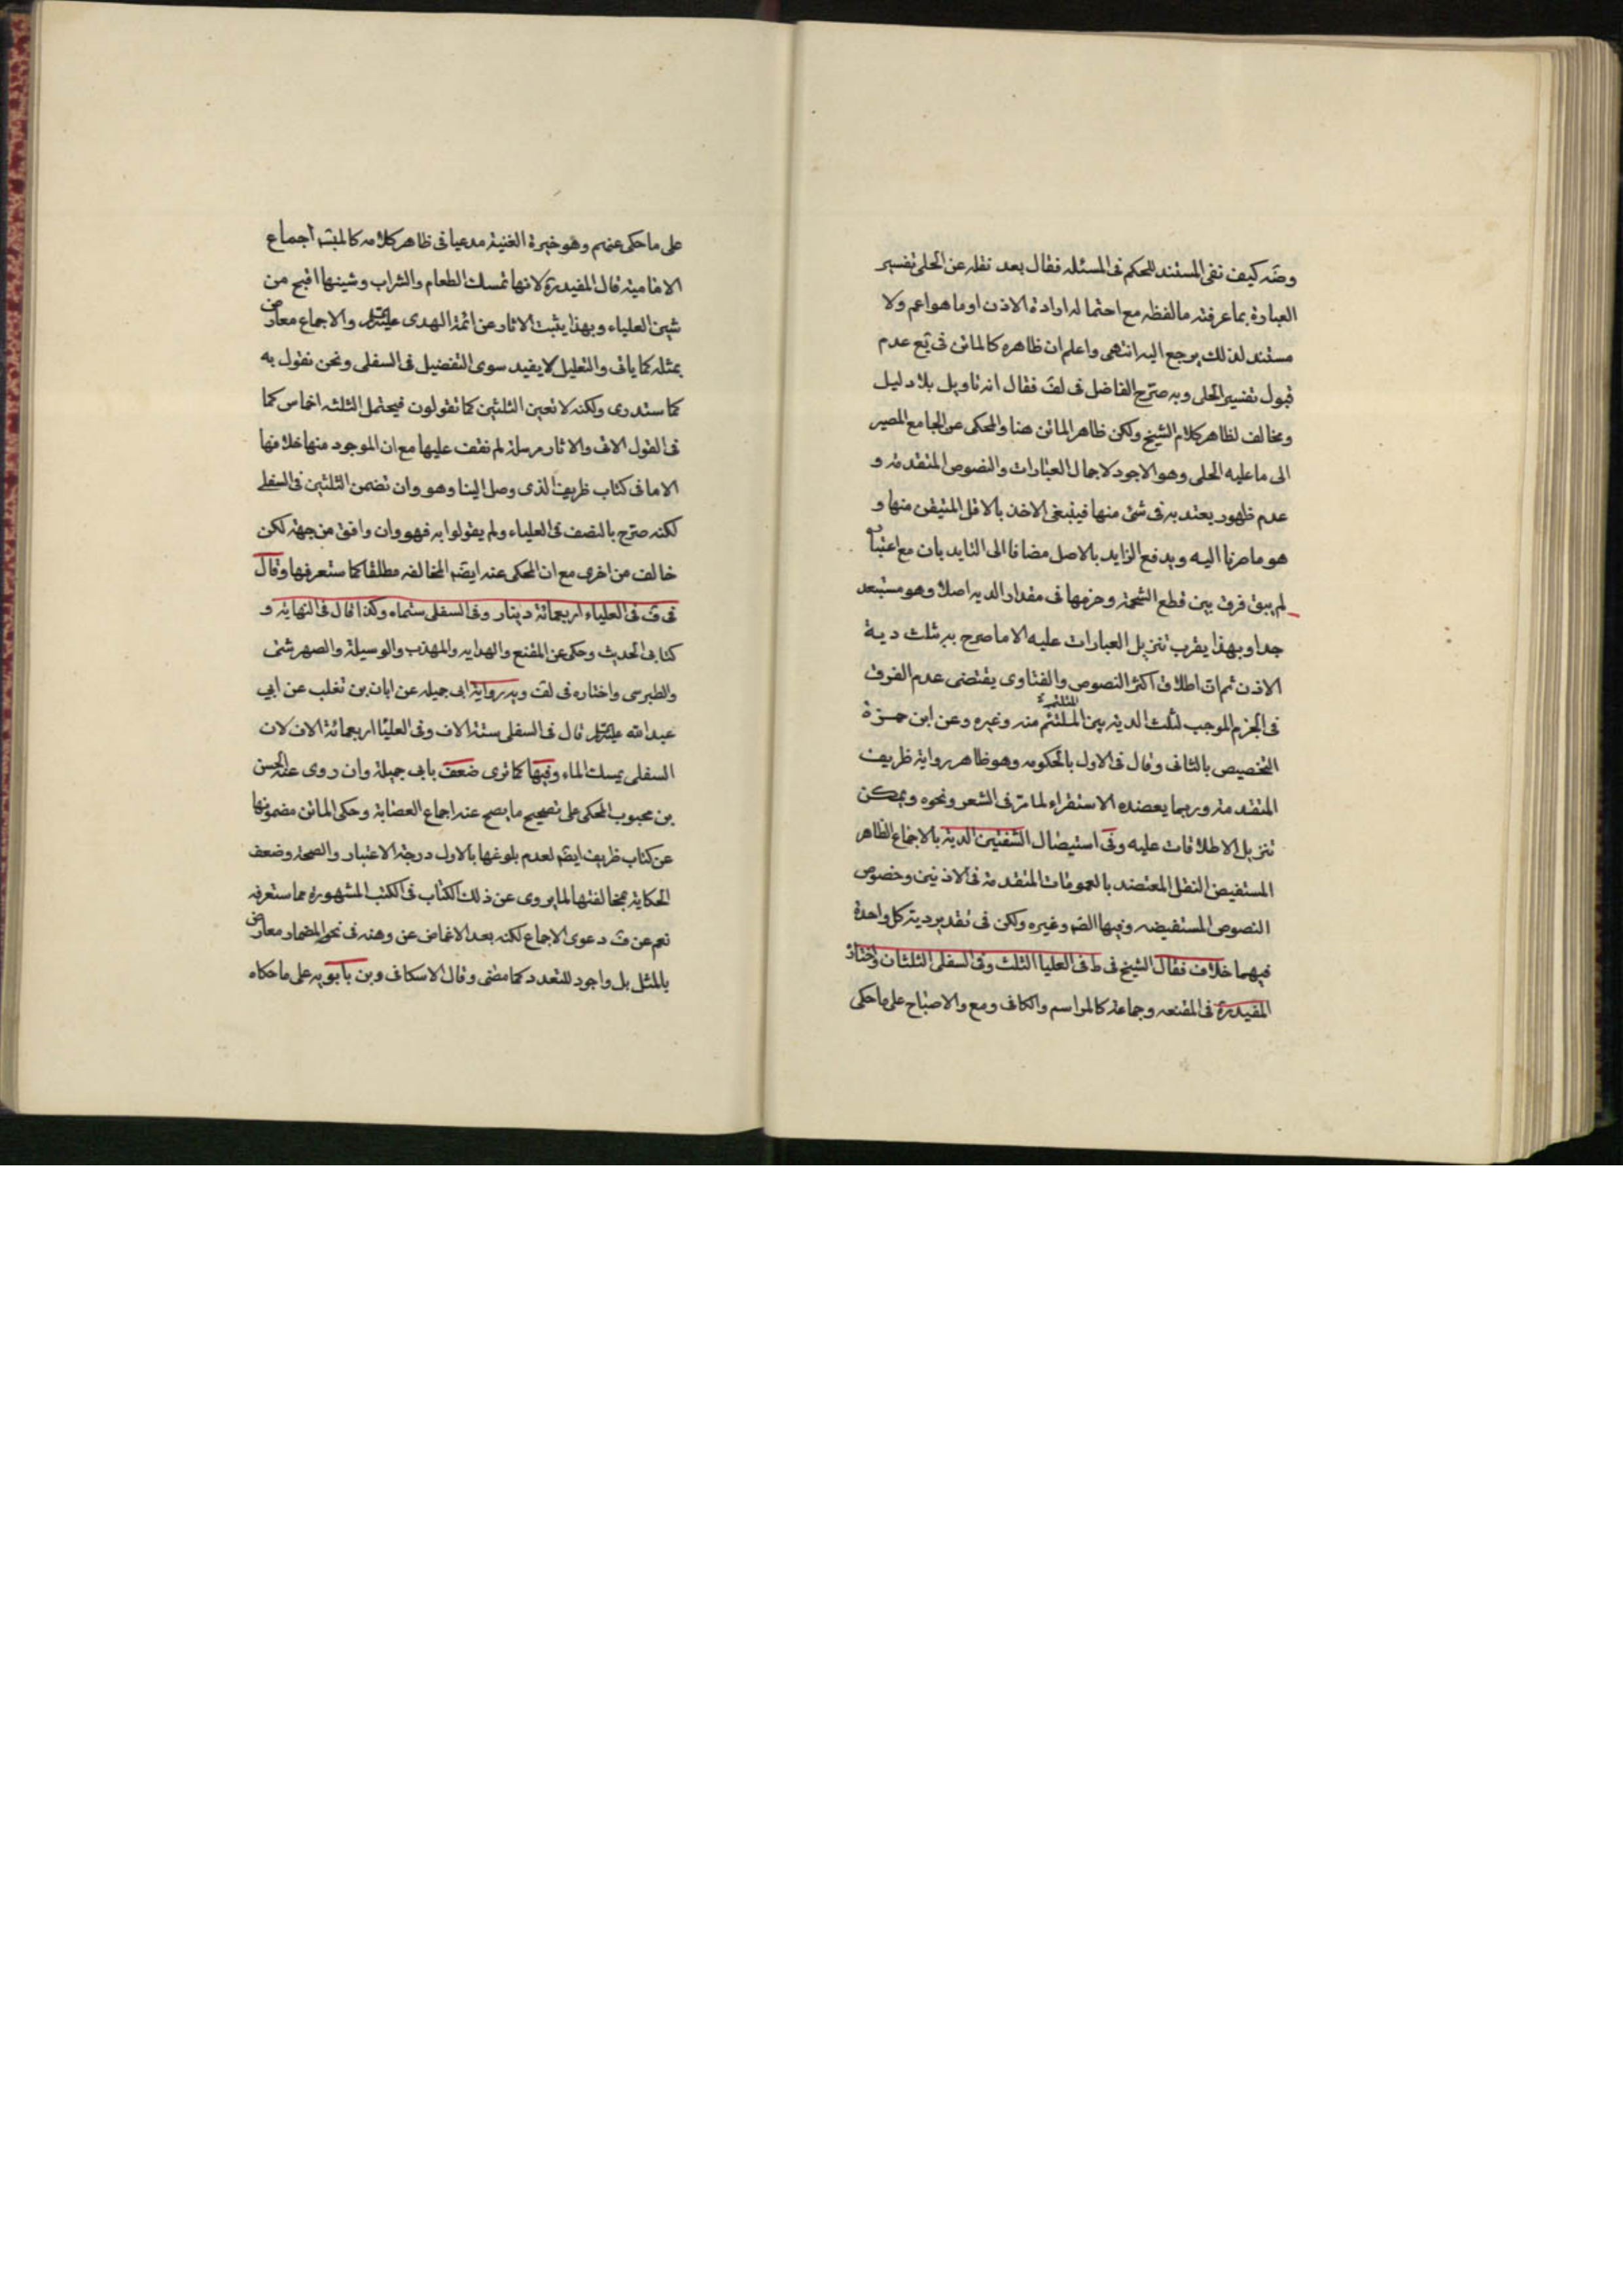 وضه كيف نفى المستند للحكم فى المسئله فقال بعد نقله عن الحلى تفسير
العبارة بما عرفته ما لفظه مع احتماله ارادة الاذن او ما هو اعم ولا
مستند لذلك يرجع اليه انتهى واعلم ان ظاهره كالماتن فى يع عدم
قبول تفسير الحلى وبه صرّح الفاضل فى لف فقال انه تاويل بلا دليل
ومخالف لظاهر كلام الشيخ ولكن ظاهر الماتن هنا والمحكى عن الجامع المصير
الى ما عليه الحلى وهو الاجود لاجمال العبارات والنصوص المتقدمة و
عدم ظهور يعتد به فى شئ منها فينبغى الاخذ بالاقل المتيقن منها و
هو ما صرنا اليه ويدفع الزايد بالاصل مضافا الى التايد بان مع اعتباره
لم يبق فرق بين قطع الشحمة وخرمها فى مقدار الديه اصلا وهو مستبعد
جدا وبهذا يقرب تنزيل العبارات عليه الا ما صرح به بثلث دية
الاذن ثم ان اطلاق اكثر النصوص والفتاوى يقتضى عدم الفرق
فى الخرم الموجب لثلث الديه بين الملتئم منه وغيره وعن ابن حمزة
التخصيص بالثانى وقال فى الاول بالحكومه وهو ظاهر رواية ظريف
المتقدمة وربما يعضده الاستقراء لما مرّ فى الشعر ونحوه ويمكن
تنزيل الاطلاقات عليه وفى استيصال الشفتين الدية بالاجماع الظاهر
المستفيض النقل المعتضد بالعمومات المتقدمة فى الاذنين وخصوص
النصوص المستفيضه وفيها الصه وغيره ولكن فى تقدير دية كل واحدة
فيهما خلاف فقال الشيخ فى ط فى العليا الثلث وفى السفلى الثلثان واختاره
المفيد ره فى المقنعه وجماعة كالمراسم والكافى ومع والاصباح على ما حكى
على ما حكى عنهم وهو خيرة الغنية مدعيا فى ظاهر كلامه كالمبسه اجماع
الامامية قال المفيد ره لانها تمسك الطعام والشراب وشينها اقبح من
شين العلياء وبهذا يثبت الاثار عن ائمة الهدى والاجماع معارض
بمثله كما ياتى والتعليل لا يفيد سوى التفضيل فى السفلى ونحن نقول به
كما ستدرى ولكنه لا تعين الثلثين كما تقولون فيحتمل الثلثه اخماس كما
فى القول الاتى والاثار مرسلة لم نقف عليها مع ان الموجود منها خلافها
الا ما فى كتاب ظريف الذى وصل الينا وهو وان تضمن الثلثين فى السفلى
لكنه صرّح بالنصف فى العلياء ولم يقولوا به فهو وان وافق من جهة لكن
خالف من اخرى مع ان المحكى عنه ايضه المخالفه مطلقا كما ستعرفها وقال
فى ف فى العلياء اربعمائة دينار وفى السفلى ستماه وكذا قال فى النهاية و
كتابى الحديث وحكى عن المقنع والهدايه والمهذب والوسيلة والصهرشتى
والطبرسى واختاره فى لف وبه رواية ابى جميله عن ابان بن تغلب عن ابي
عبد الله قال فى السفلى ستة الاف وفى العليا اربعمائة الاف لان
السفلى يمسك الماء وفيها كما ترى ضعف بابى جميلة وان روى عنه الحسن
بن محبوب المحكى على تصحيح ما يصح عنه اجماع العصابة وحكى الماتن مضمونها
عن كتاب ظريف ايضه لعدم بلوغها بالاول درجة الاعتبار والصحة وضعف
الحكاية بمخالفتها لما يروى عن ذلك الكتاب فى الكتب المشهورة مما ستعرفه
نعم عن ف دعوى الاجماع لكنه بعد الاغماض عن وهنه فى نحو المضمار معارض
بالمثل بل واجود للتعدد كما مضى وقال الاسكافى وبن بابويه على ما حكاه